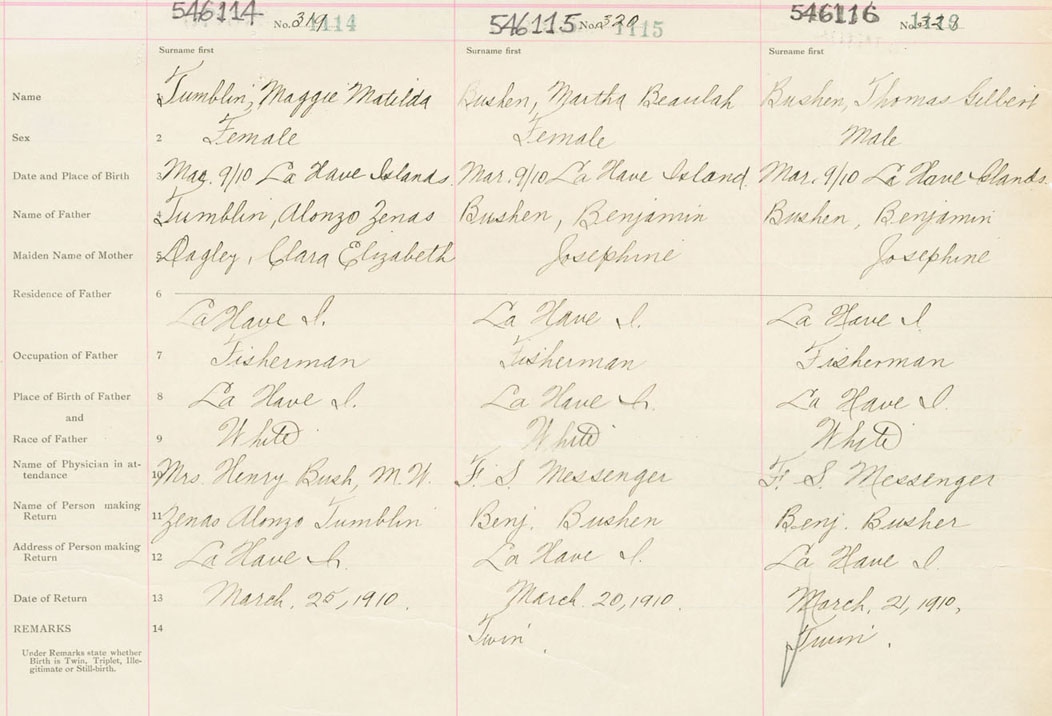 546114 No. 319 1114 546115 No. 320 1115 546116 No.
Surname first Surname first Surname first
Name 1 Tumblin, Maggie Matilda Bushen, Martha Beaulah Bushen, Thomas Gilbert
Sex 2 Female Female Male
Date and Place of Birth 3 Mar. 9/10 La Have Islands. Mar. 9/10 La Have Island. Mar. 9/10 La Have Islands.
Name of Father 4 Tumblin, Alonzo Zenas Bushen, Benjamin Bushen, Benjamin
Maiden Name of Mother 5 Dagley, Clara Elizabeth Josephine Josephine
Residence of Father 6
La Have I. La Have I. La Have I
Occupation of Father 7 Fisherman Fisherman Fisherman
Place of Birth of Father 8 La Have I. La Have I. La Have I.
and
Race of Father 9 White White White
Name of Physician in at-
tendance 10 Mrs. Henry Bush, M.W. F. S. Messenger F. S. Messenger
Name of Person making
Return 11 Zenas Alonzo Tumblin Benj. Bushen Benj. Busher
Address of Person making
Return 12 La Have I. La Have I. La Have I.
Date of Return 13 March, 25, 1910. March. 20, 1910. March, 21, 1910,
REMARKS 14 Twin. Twin.
Under Remarks state whether
Birth is Twin, Triplet, Ille-
gitimate or Still-birth.